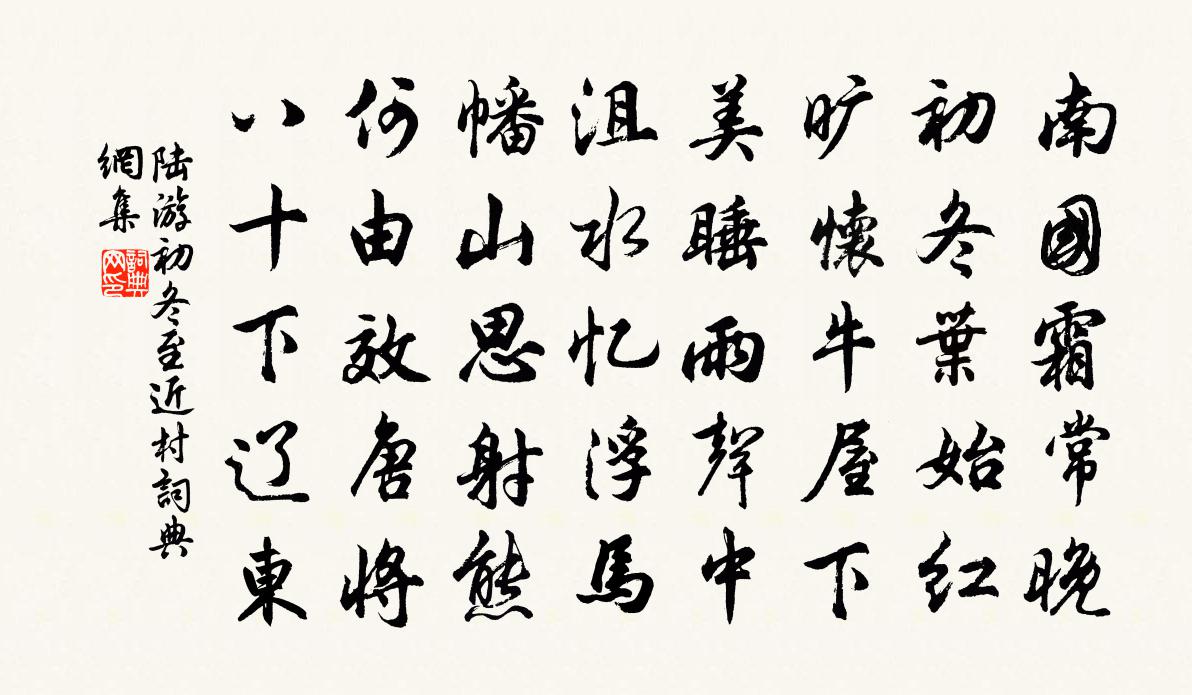 南國霜常晚
初冬葉始红
旷懷牛屋下
美睡雨聲中
沮水忆浮馬
幡山思射熊
何由效唐將
八十下辽東
陸游初冬至近村詞典
網集
詞典
网印